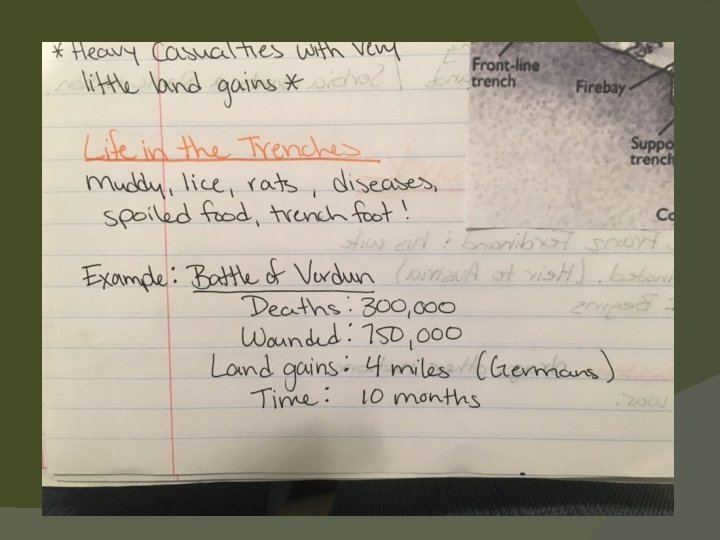 * Heavy Casualties with very
little land gains *
Front-line
trench
Firebay
Suppo
trench
Co
Life in the Trenches
muddy, lice, rats, diseases,
spoiled food, trench foot!
Example: Battle of Verdun
Deaths: 300,000
Wounded: 750,000
Land gains: 4 miles (Germans)
Time: 10 months